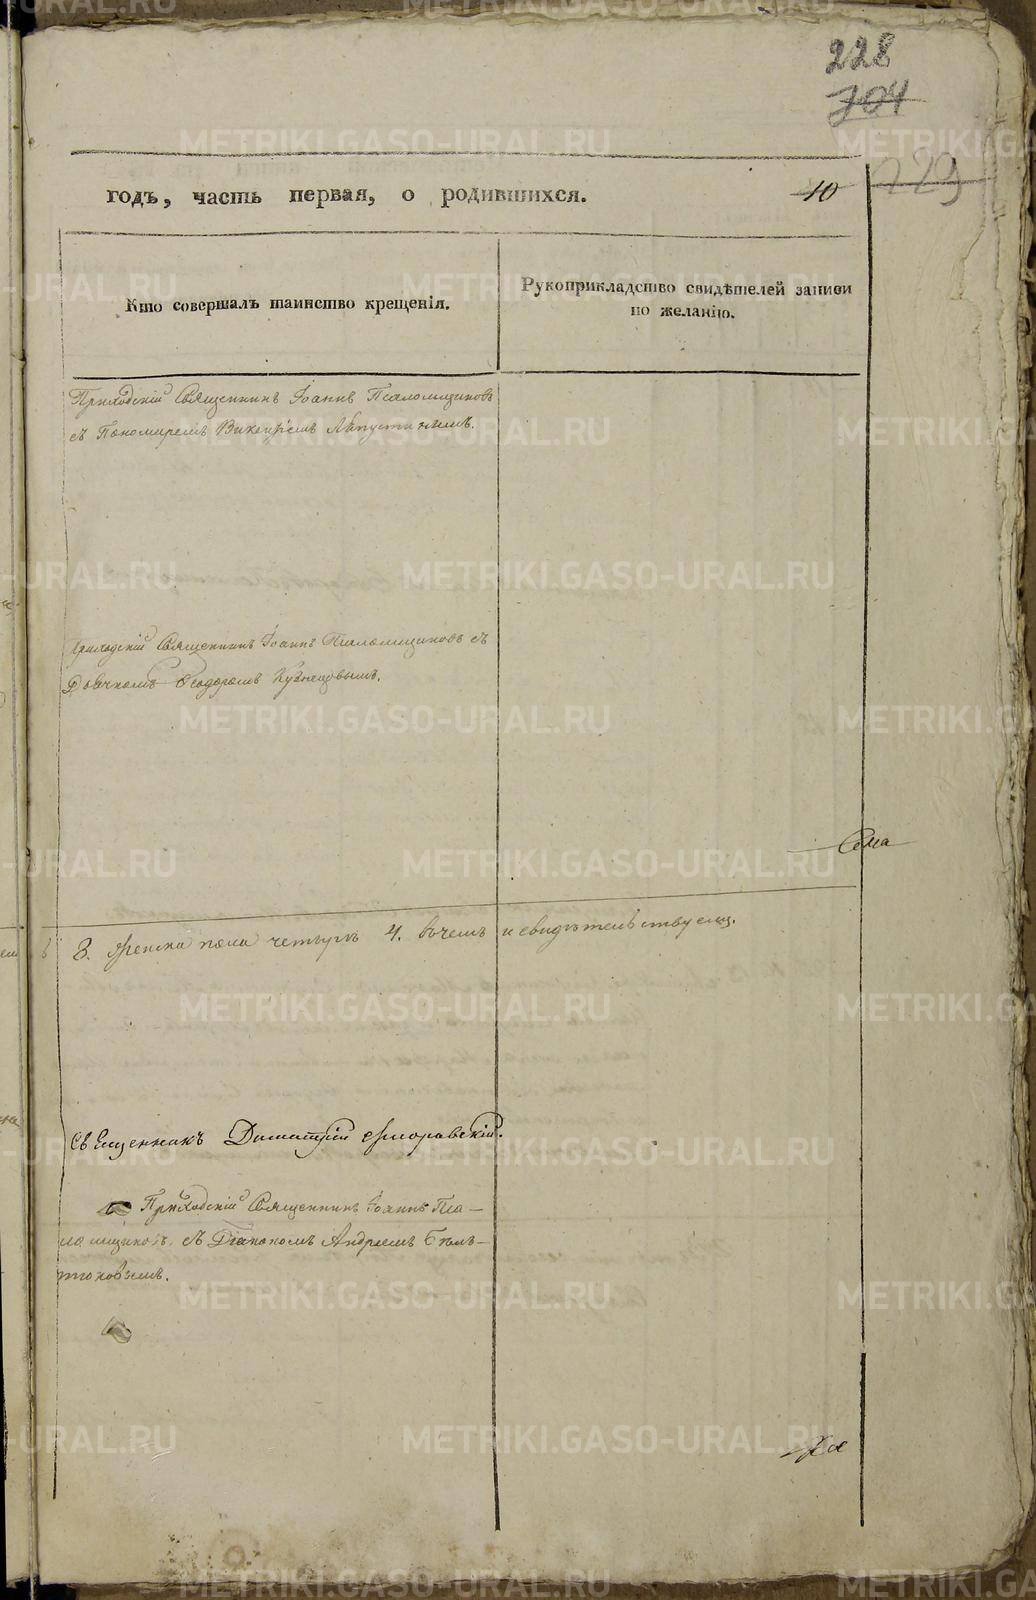 228
704
229
годъ, часть первая, о родившихся. 10
Кто совершалъ таинство крещенія.
Рукоприкладство свидѣтелей записи
по желанію.
Приходскій Священникъ Іоаннъ Псаломщиковъ
съ Пономаремъ Викентіемъ
Приходскій Священникъ Іоаннъ Псаломщиковъ съ
Дьячкомъ Ѳеодоромъ Кузнецовымъ.
8. женска пола четыре 4. въ чемъ и свидѣтельствуемъ.
Священникъ Димитрій
Приходскій Священникъ Іоаннъ Пса-
ломщиковъ съ Діакономъ Андреемъ
METRIKI.GASO-URAL.RU